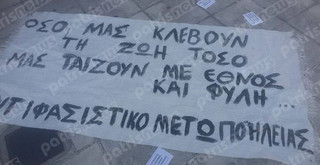 ΟΣΟ ΜΑΣ ΚΛΕΒΟΥΝ
ΤΗ ΖΩΗ ΤΟΣΟ
ΜΑΣ ΤΑΙΖΟΥΝ ΜΕ ΕΘΝΟΣ
ΚΑΙ ΦΥΛΗ...
ΝΤΙΦΑΣΙΣΤΙΚΟ ΜΕΤΩΠΟ ΗΛΕΙΑΣ
patrisnews